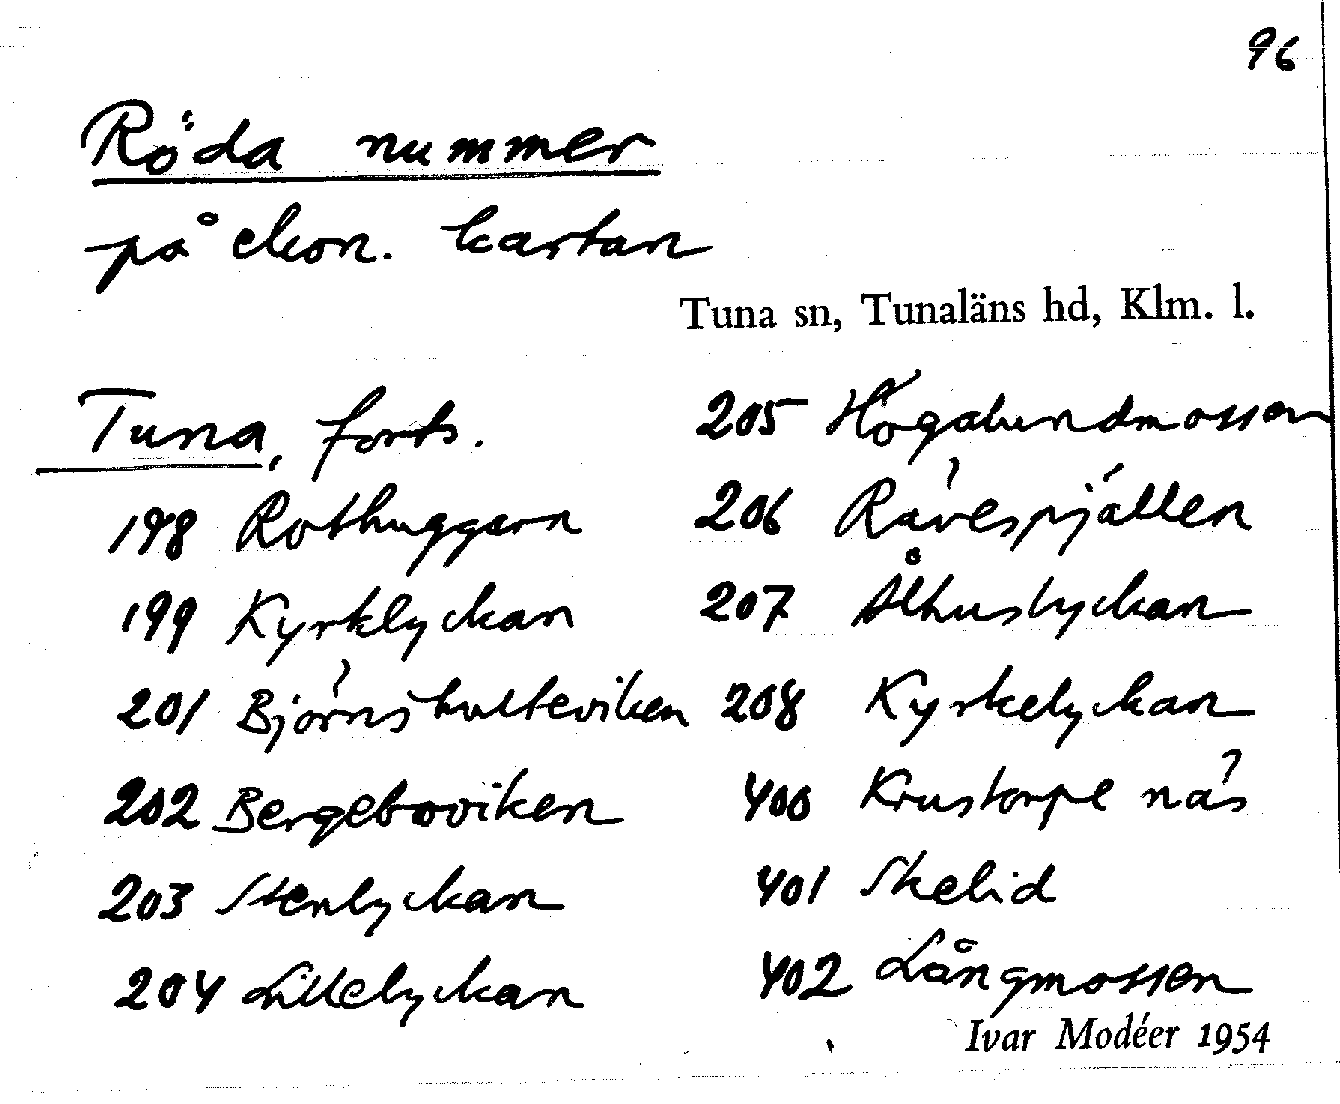 96
Röda nummer
på ekon. kartan
Tuna sn, Tunaläns hd, Klm. l.
Tuna, forts.
198 Rothuggarn
199 Kyrklyckan
201 Björnshulteviken
202 Bergeboviken
203 Stenlyckan
204 Lillelyckan
205 Högalundmossen
206 Rävespjällen
207 Ålhuslyckan
208 Kyrkelyckan
400 Krustorpe näs
401 Skelid
402 Långmossen
Ivar Modéer 1954